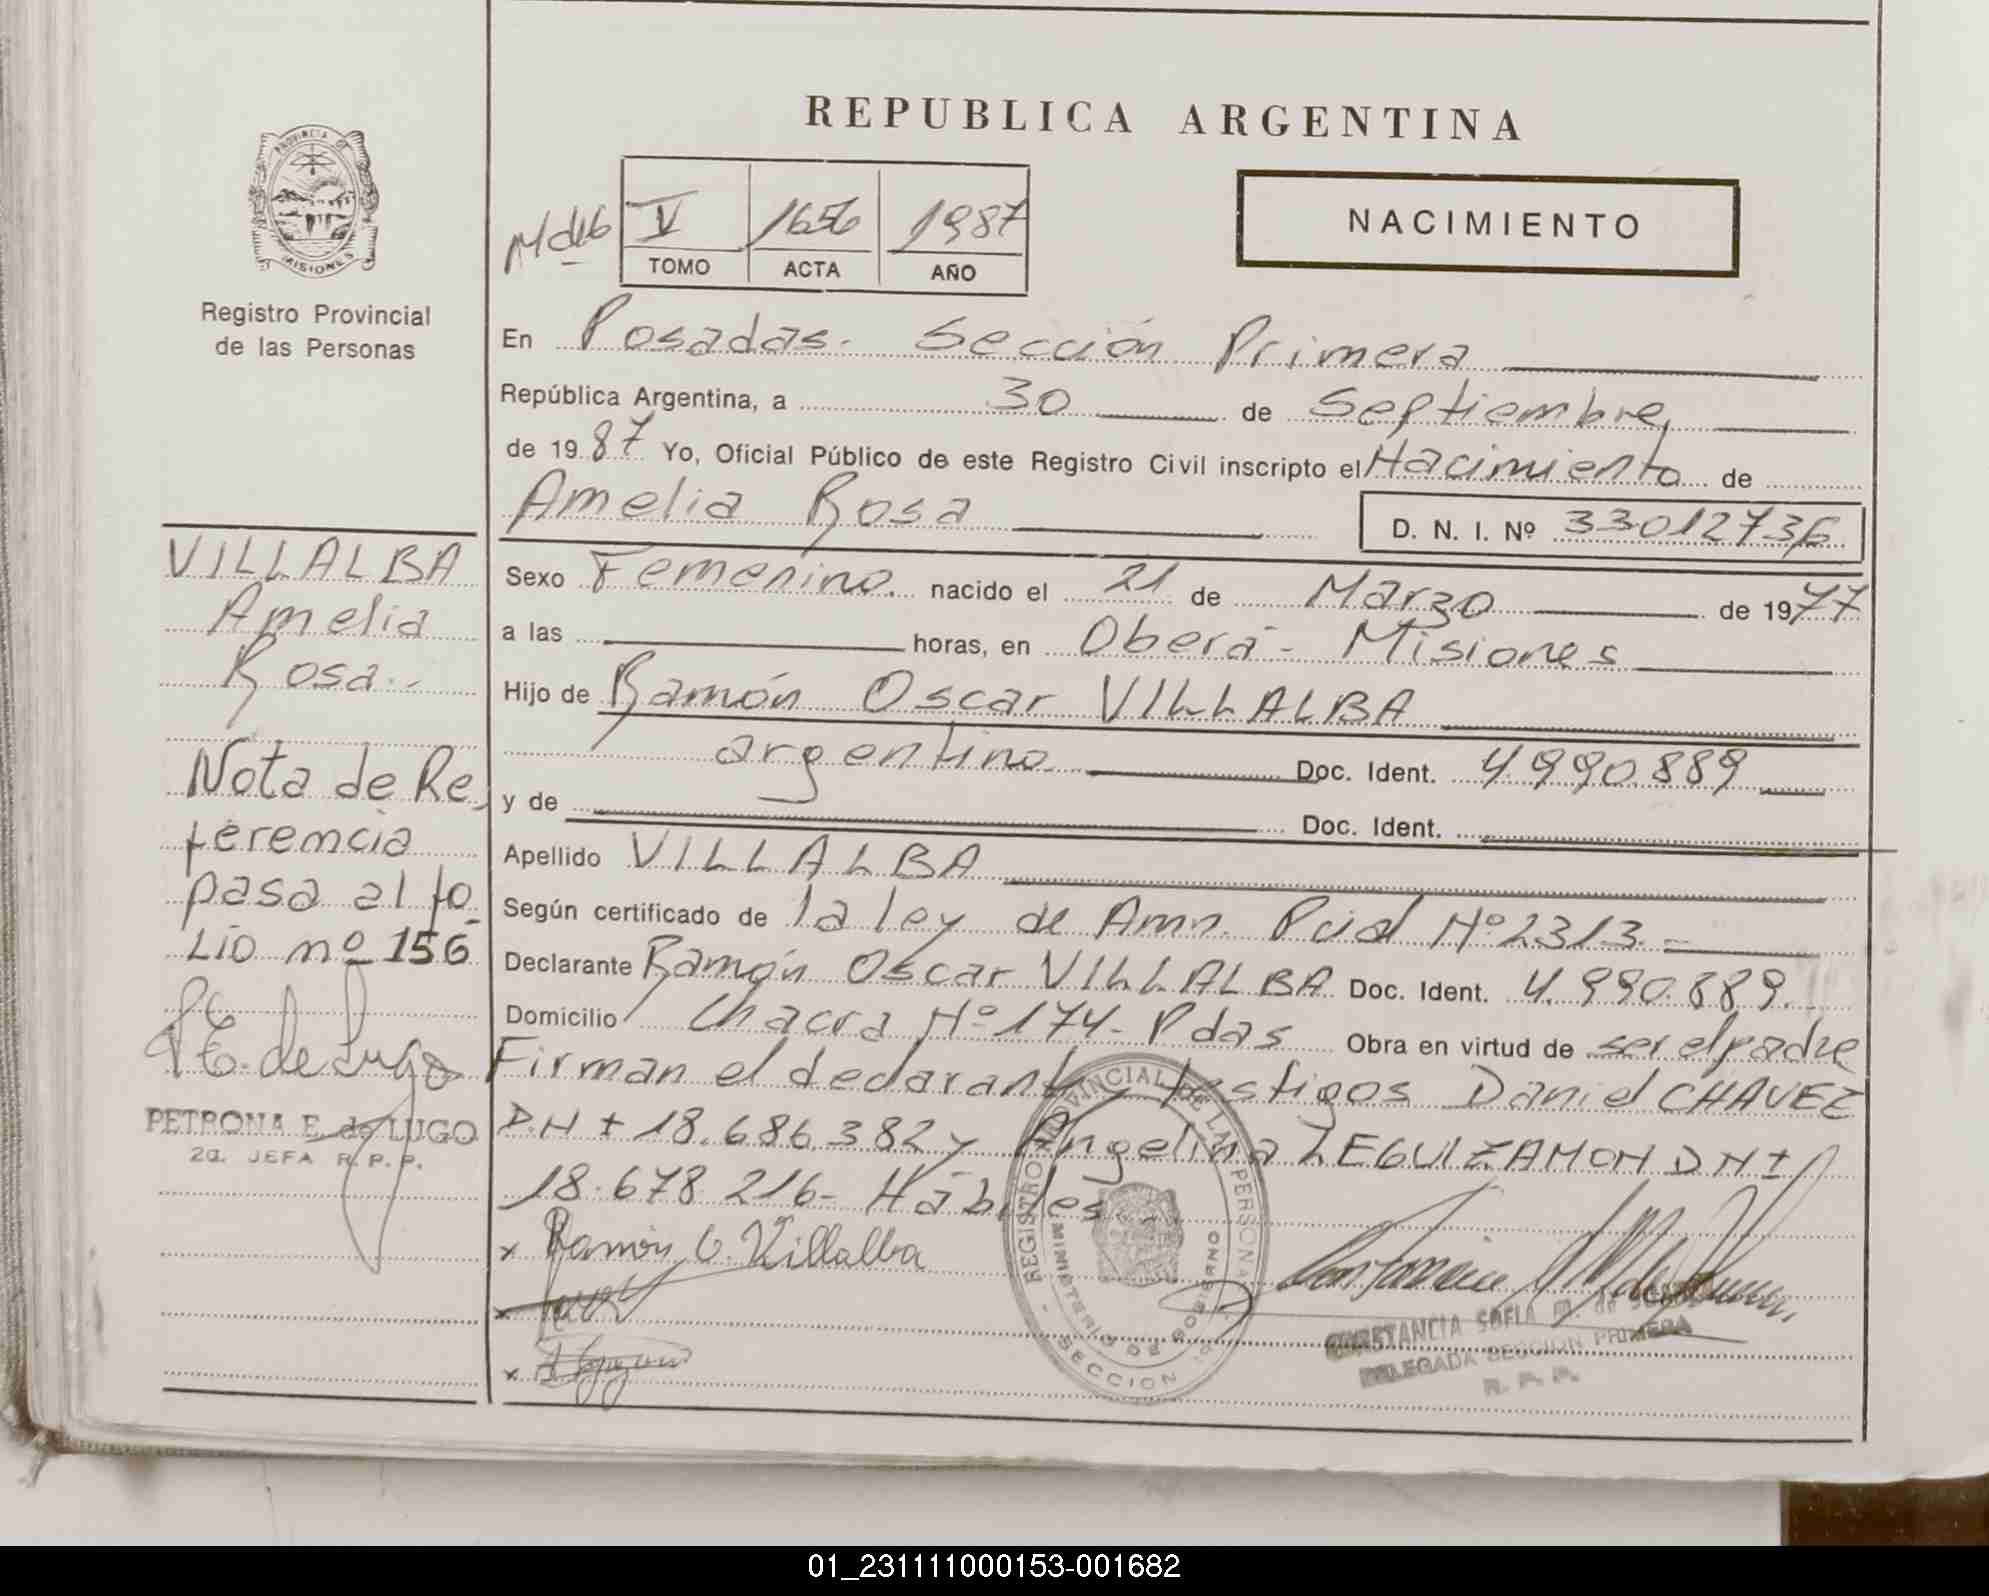 REPUBLICA ARGENTINA
PROVINCIA DE
MISIONES
Registro Provincial
de las Personas
V 1656 1987
TOMO ACTA AÑO
NACIMIENTO
En Posadas. Sección Primera
República Argentina, a 30 de Septiembre
de 1987 Yo, Oficial Público de este Registro Civil inscripto el Nacimiento de
Amelia Rosa D. N. I. Nº 33012736
Sexo Femenino. nacido el 21 de Marzo de 1977
a las horas, en Oberá - Misiones
Hijo de Ramón Oscar VILLALBA
argentino Doc. Ident. 4.990.889
y de Doc. Ident.
Apellido VILLALBA
Según certificado de la ley de Amn. Pcial Nº 2313.-
Declarante Ramón Oscar VILLALBA Doc. Ident. 4.990.889.
Domicilio Chacra Nº 174- Pdas Obra en virtud de ser el padre
Firman el declarante testigos Daniel CHAVEZ
DNI 18.686.382 y Angelina LEGUIZAMON DNI
18.678.216- Hábiles
x Ramón O. Villalba
x
x
REGISTRO PROVINCIAL DE LAS PERSONAS
MINISTERIO DE GOBIERNO
SECCION
CONSTANCIA SOFIA M. de
DELEGADA SECCION PRIMERA
R. P. P.
VILLALBA
Amelia
Rosa..
Nota de Re
ferencia
pasa al fo
Lio nº 156
P E. de Lugo
PETRONA E. de LUGO
2a. JEFA R. P. P.
01_231111000153-001682